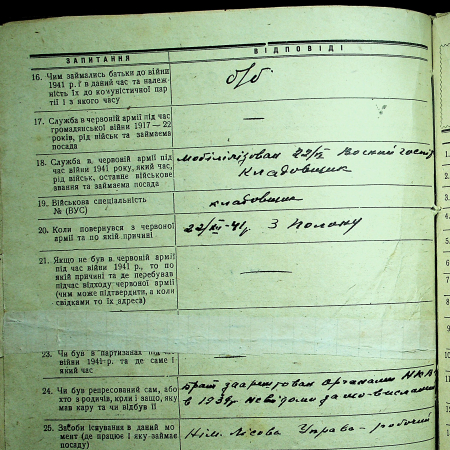 ЗАПИТАННЯ ВІДПОВІДІ
16. Чим займались батьки до війни
1941 р. і в даний час та належ-
ність їх до комуністичної пар-
тії і з якого часу
б/б
17. Служба в червоній армії під час
громадянської війни 1917—22
років, рід військ та займаєма
посада
—
18. Служба в червоній армії під
час війни 1941 року, який час,
рід військ, останнє військове
звання та займаєма посада
мобілізован 22/VI
Кладовщик
19. Військова спеціальність
№ (ВУС)
кладовщик
20. Коли повернувся з червоної
армії та по якій причині
22/XII-41р. З Полону
21. Якщо не був в червоній армії
під час війни 1941 р., то по
якій причині та де перебував
підчас відходу червоної армії
(чим може підтвердити, а коли
свідками то їх адреса)
—
23. Чи був в партизанах під час
війни 1941 р. та де саме і
який час
—
24. Чи був репресований сам, або
хто з родичів, коли і защо, яку
мав кару та чи відбув її
брат заарештован органами НКВ
в 1937р невідомо за що - висланий
25. Засоби існування в даний мо-
мент (де працює і яку займає
посаду)
Нім. Лісова Управа - робочий